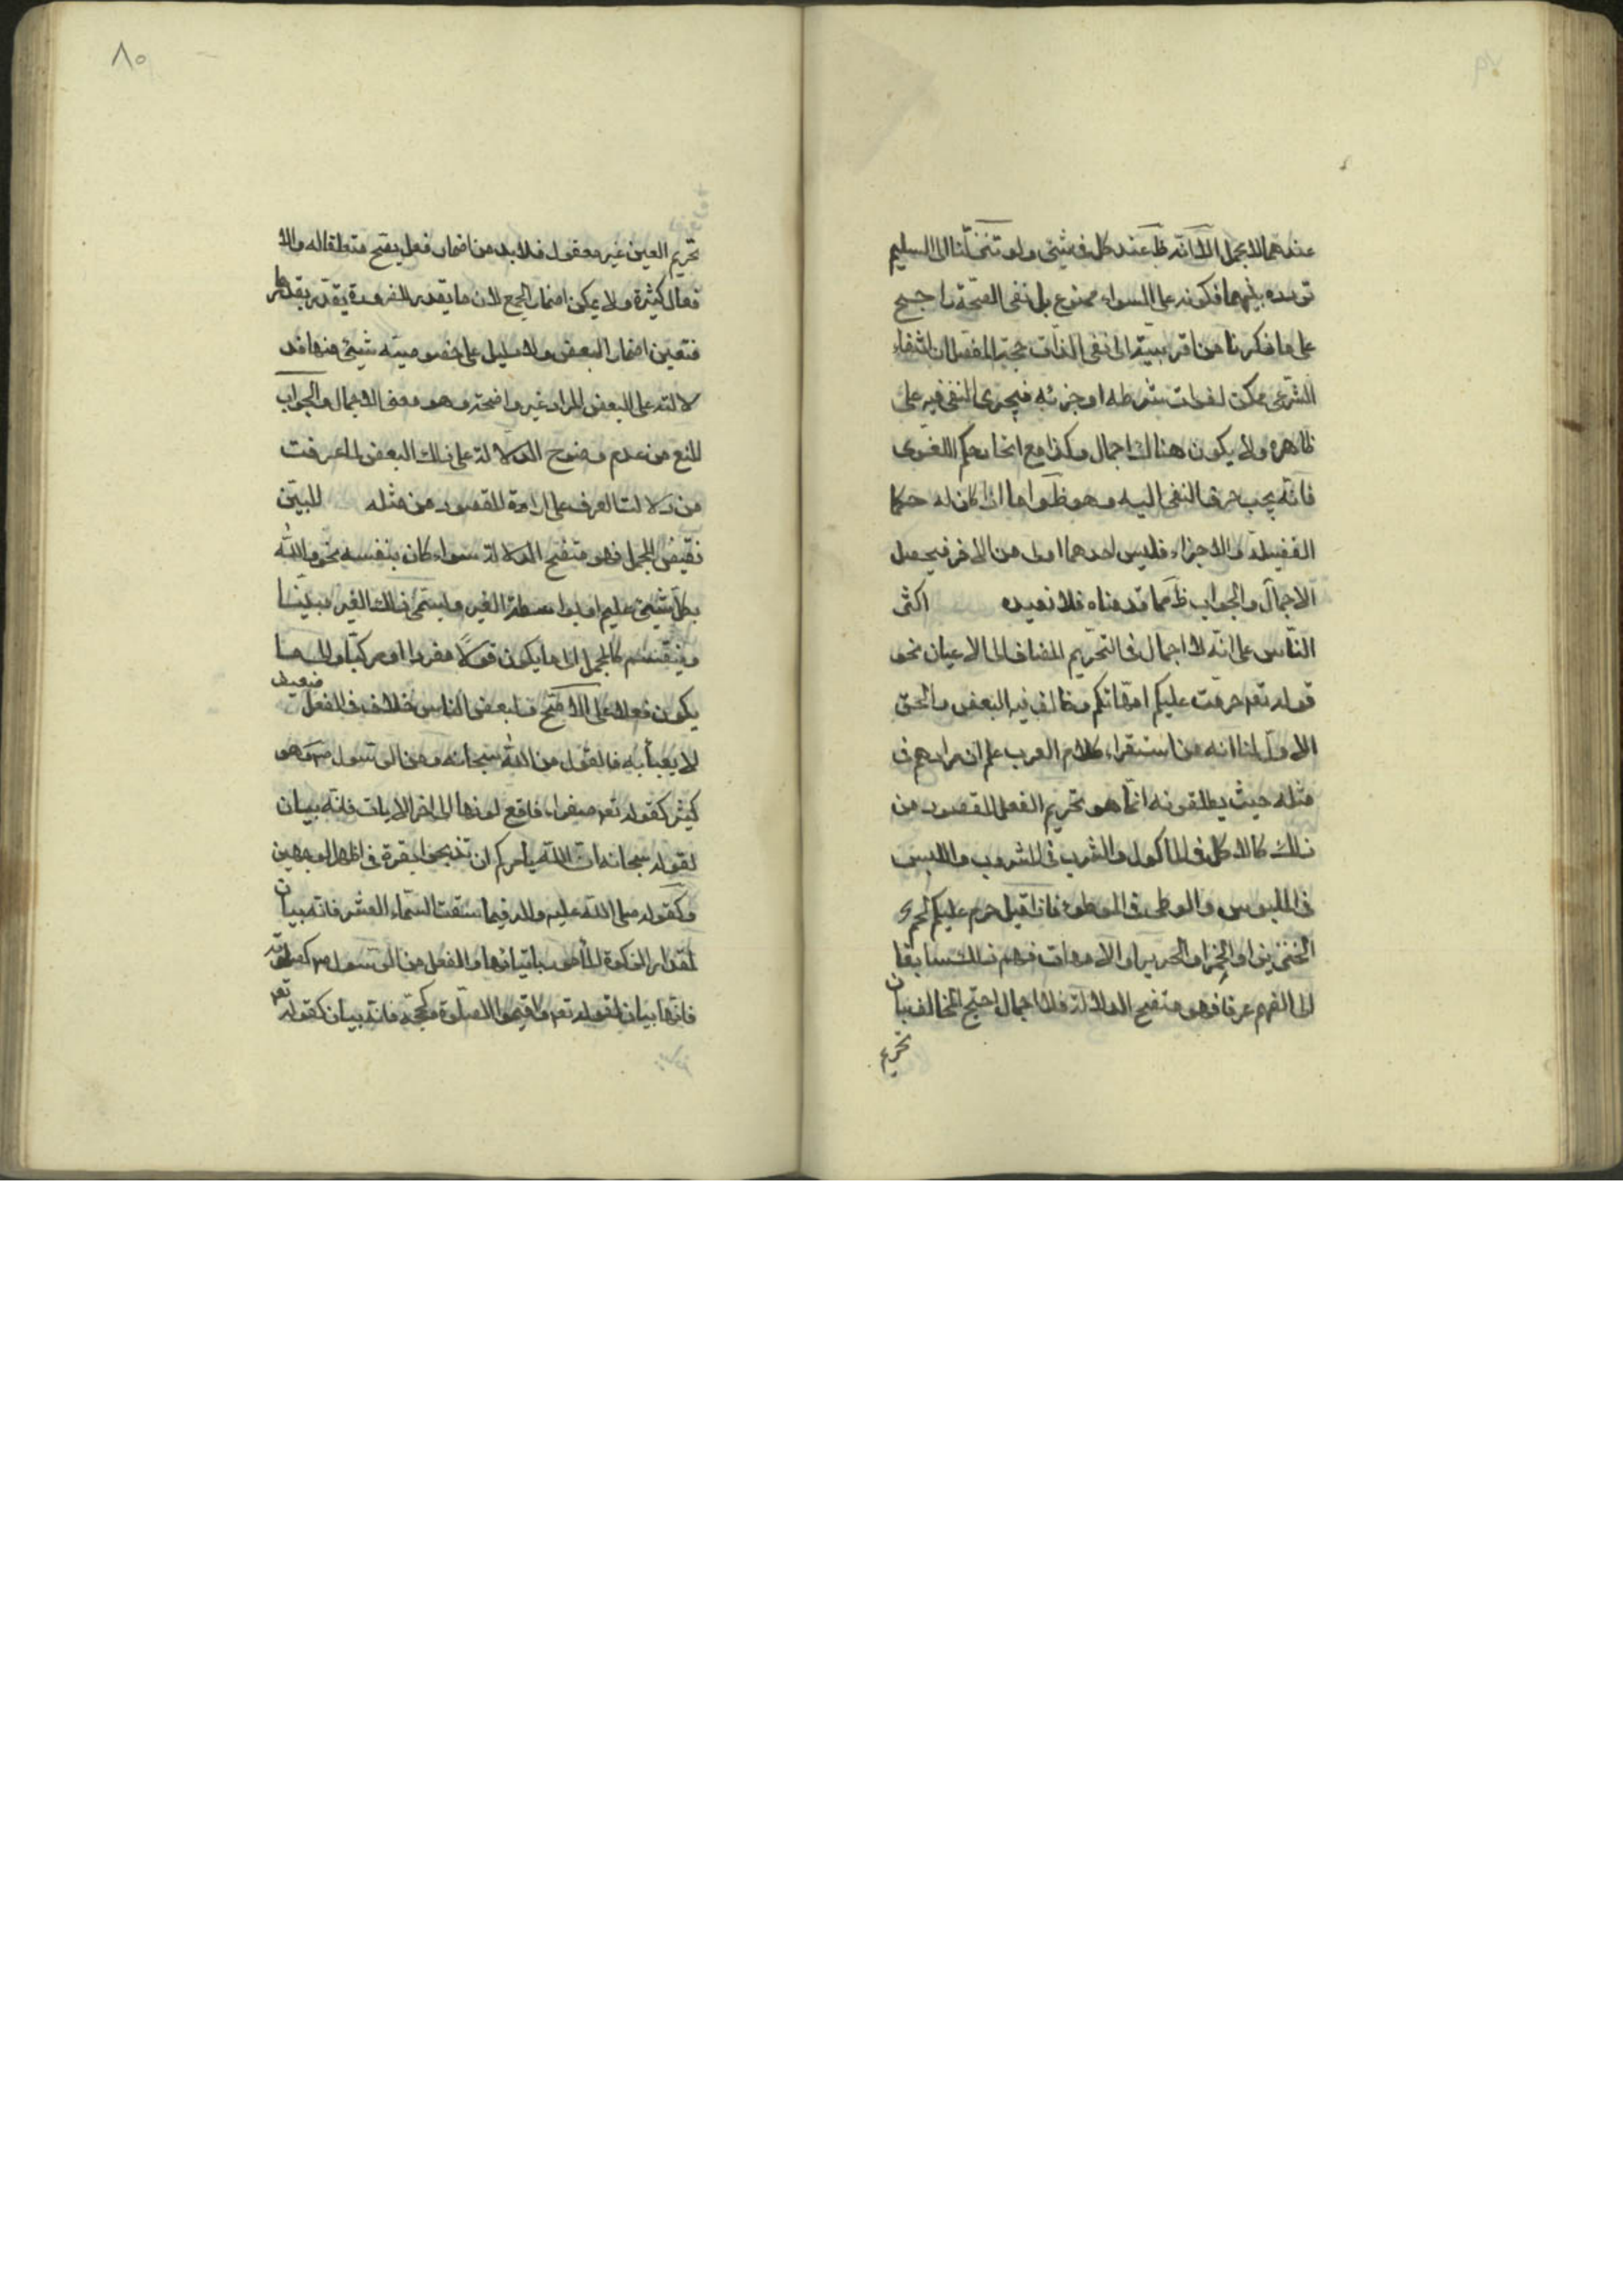 عندهما لا مجمل الا انه ظ عند كل في شيئ ولو تنزلنا الى التسليم
تردده بينهما فكونه على السواء ممنوع بل نفى الصحة راجح
على ما ذكرنا من اقربيته الى نفى الذات حجة المفصل ان انتفاء
الشرعى ممكن لفوات شرطه او جزئه فيجرى النفى فيه على
ظاهره ولا يكون هناك اجمال وكذا مع اتحاد حكم اللغوى
فانه يجب صرف النفى اليه وهو ظ واما اذا كان له حكما
الفضيلة والاجزاء فليس احدهما اولى من الاخر فيحصل
الاجمال والجواب ظ مما قدمناه فلا نعيده اكثر
الناس على انه لا اجمال فى التحريم المضاف الى الاعيان نحو
قوله تعه حرمت عليكم امهاتكم وخالف فيه البعض والحق
الاول لنا انه من استقراء كلام العرب علم ان مرادهم فى
مثله حيث يطلقونه انما هو تحريم الفعل المقصود من
ذلك كالاكل فى الماكول والشرب فى المشروب واللبس
فى الملبوس والوطى فى الموطوء فاذا قيل حرم عليكم لحم
الخنزير او الخمر او الحرير او الامهات فهم ذلك سابقا
الى الفهم عرفا فهو متضح الدلالة فلا اجمال احتج المخالف بان
تحريم
٨٥
تحريم العين غير معقول فلا بد من اضمار فعل يصح متعلقا له والا
فعال كثيرة ولا يمكن اضمار الجمع لان ما يقدر للضرورة يقدر بقدرها
فتعين اضمار البعض ولا دليل على خصوصية شيئ منها فد
لالته على البعض المراد غير واضحة وهو معنى الاجمال والجواب
المنع من عدم وضوح الدلالة على ذلك البعض لما عرفت
من دلالة العرف على ارادة المقصود من مثله المبين
نقيض المجمل فهو متضح الدلالة سواء كان بنفسه نحو والله
بكل شيئ عليم او بواسطة الغير ويسمى ذلك الغير مبينا
وينقسم كالمجمل الى ما يكون قولا مفردا او مركبا والى ما
يكون فعلا على الاصح ولبعض الناس خلاف فى الفعل ضعيف
لا يعبأ به فالقول من الله سبحانه ومن الرسول ص وهو
كثير كقوله تعه صفراء فاقع لونها الى اخر الايات فانه بيان
لقوله سبحانه ان الله يأمركم ان تذبحوا بقرة فى اظهر الوجهين
وكقوله صلى الله عليه واله فيما سقت السماء العشر فانه بيان
لمقدار الزكوة المأمور باتيانها والفعل من الرسول ص كصلوته
فانها بيان لقوله تعه واقيموا الصلوة وكحجه فانه بيان كقوله تعه